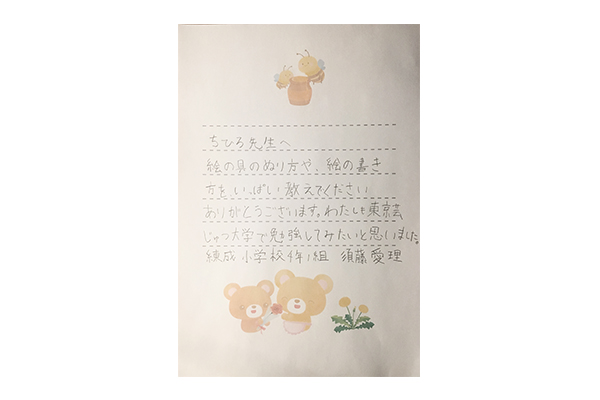 ちひろ先生へ
絵の具のぬり方や、絵の書き
方を、いっぱい教えてくださり
ありがとうございます。わたしも東京芸
じゅつ大学で勉強してみたいと思いました。
練成小学校4年1組 須藤愛理